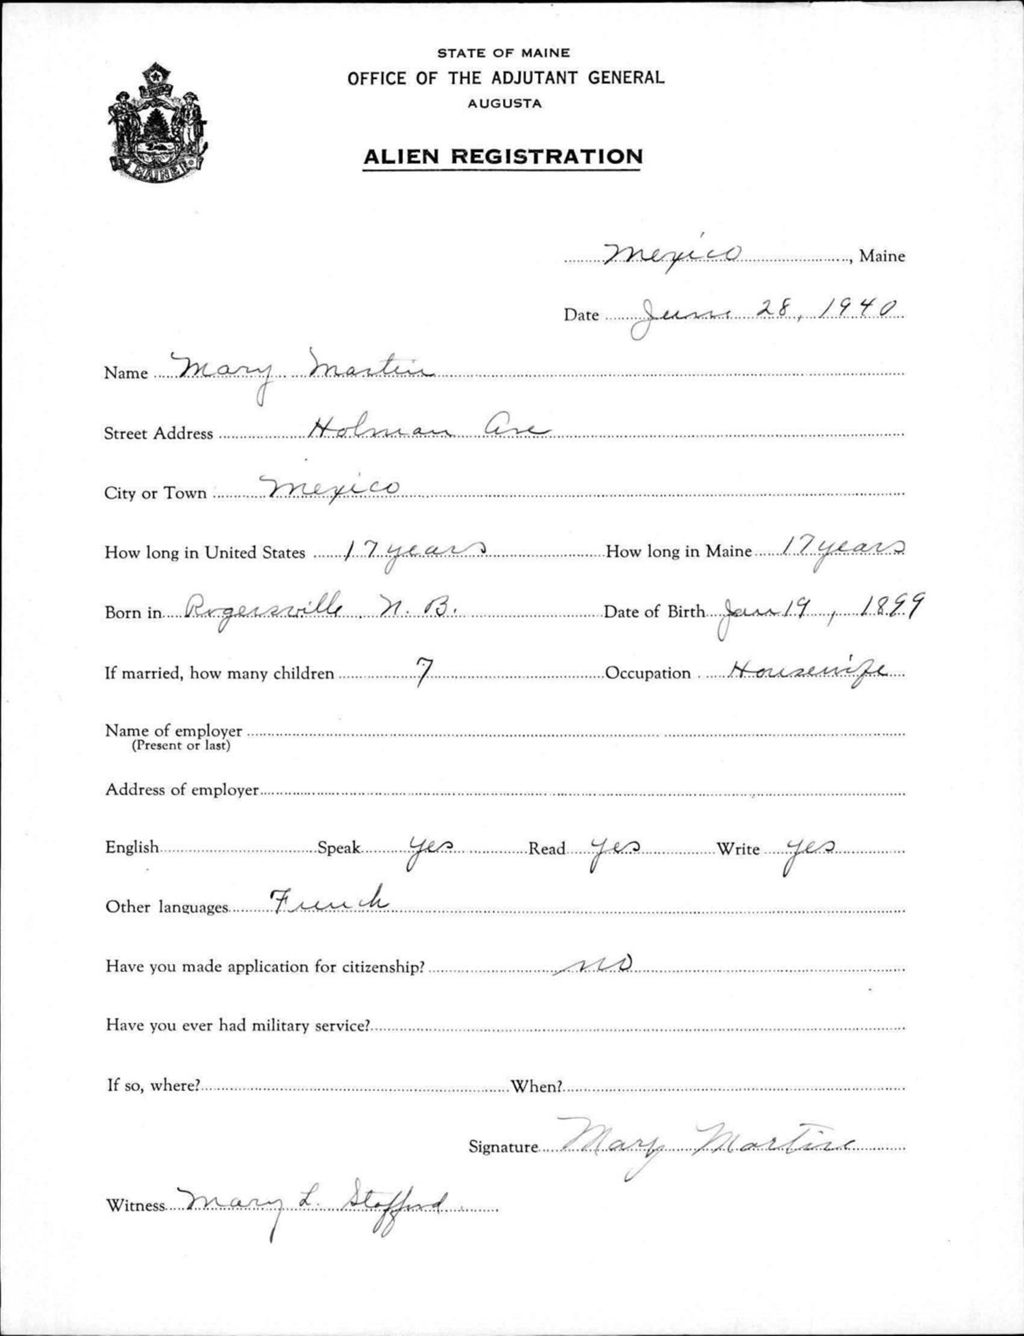 STATE OF MAINE
OFFICE OF THE ADJUTANT GENERAL
AUGUSTA
ALIEN REGISTRATION
MAINE
Mexico, Maine
Date June 28, 1940
Name Mary Martin
Street Address Holman Ave
City or Town Mexico
How long in United States 17 years How long in Maine 17 years
Born in Rogersville, N. B. Date of Birth Jan 19, 1899
If married, how many children 7 Occupation Housewife
Name of employer
(Present or last)
Address of employer
English Speak yes Read yes Write yes
Other languages French
Have you made application for citizenship? no
Have you ever had military service?
If so, where? When?
Signature Mary Martin
Witness Mary L. Stafford